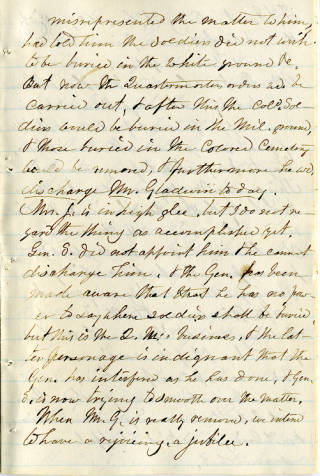 misrepresented the matter to him,
had told him the soldiers did not wish
to be buried in the white ground &c.
But now the Quartermasters orders wd be
carried out, & after this the Cold. Sol-
diers would be buried in the Mil. ground,
& those buried in the Colored Cemetery
would be removed, & furthermore he wd
discharge Mr. Gladwin to day.
Mrs. J. is in high glee, but I do not re-
gard the thing as accomplished yet.
Gen. S. did not appoint him & he cannot
discharge him. & the Gen. has been
made aware that that he has no pow-
er to say where soldiers shall be buried,
but this is the Q. M's. business, & the lat-
ter personage is indignant that the
Gen. has interfered as he has done, & Gen.
S. is now trying to smooth over the matter.
When Mr. G. is really removed, we intend
to have a rejoicing, a jubilee.